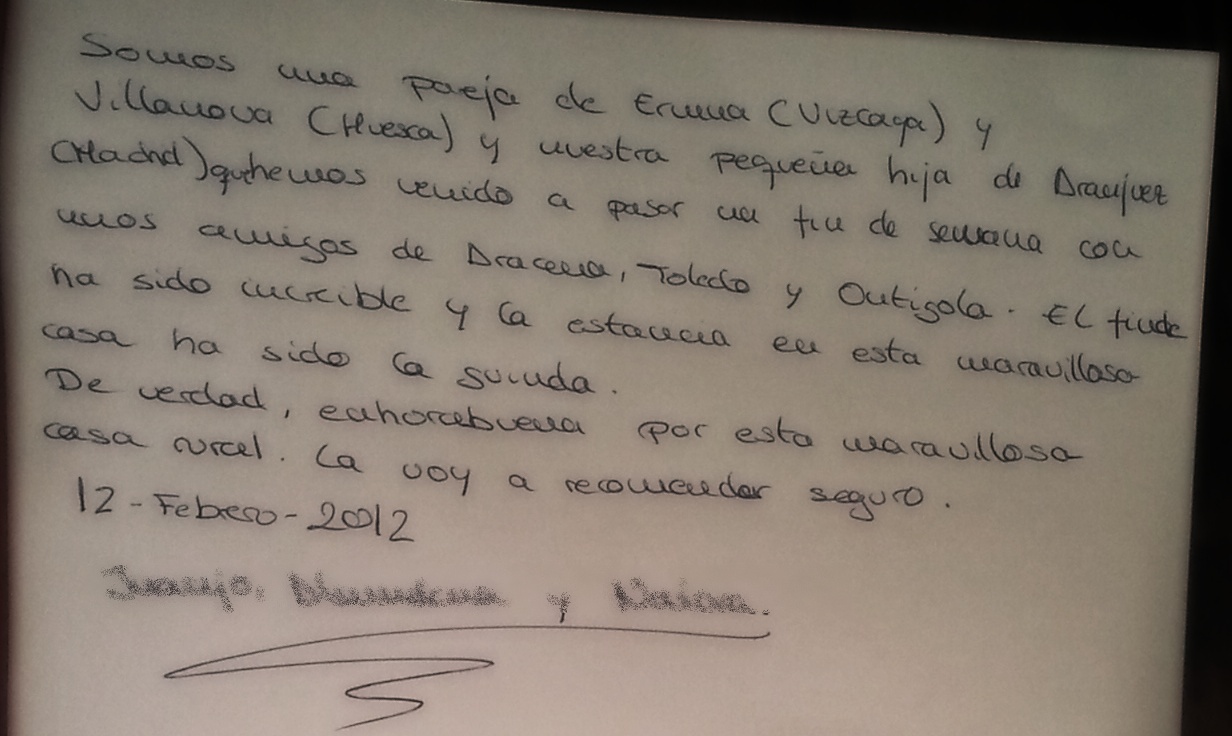 Somos una pareja de Ermua (Vizcaya) y
Villanova (Huesca) y nuestra pequeña hija de Aranjuez
(Madrid) que hemos venido a pasar un fin de semana con
unos amigos de Aracena, Toledo y Ontigola. El finde
ha sido increíble y la estancia en esta maravillosa
casa ha sido la
De verdad, enhorabuena por esta maravillosa
casa rural. La voy a recomendar seguro.
12-Febrero-2012
y